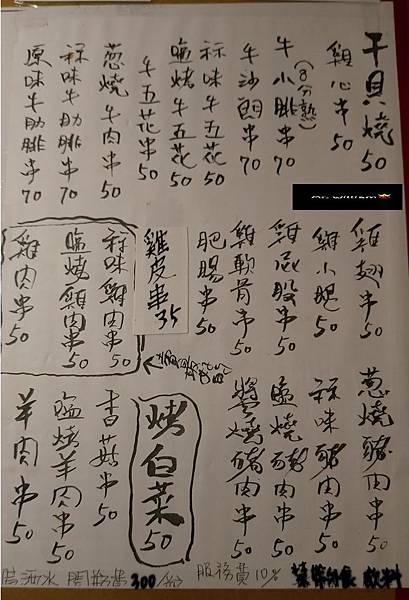 干貝燒 50
雞心串 50
牛小腓串 70
(8分熟)
牛沙朗串 70
祘味牛五花 50
鹽烤牛五花 50
牛五花串 50
蔥燒牛肉串 50
祘味牛肋腓串 70
原味牛肋腓串 70
雞翅串 50
雞小腿 50
雞屁股串 50
雞軟骨串 50
肥腸串 50
雞皮串 35
祘味雞肉串 50
鹽燒雞肉串 50
雞肉串 50
蔥燒豬肉串 50
祘味豬肉串 50
鹽燒豬肉串 50
醬燒豬肉串 50
烤白菜 50
香菇串 50
鹽烤羊肉串 50
羊肉串 50
酒水 開瓶費 300/ 服務費10% 禁帶外食 飲料